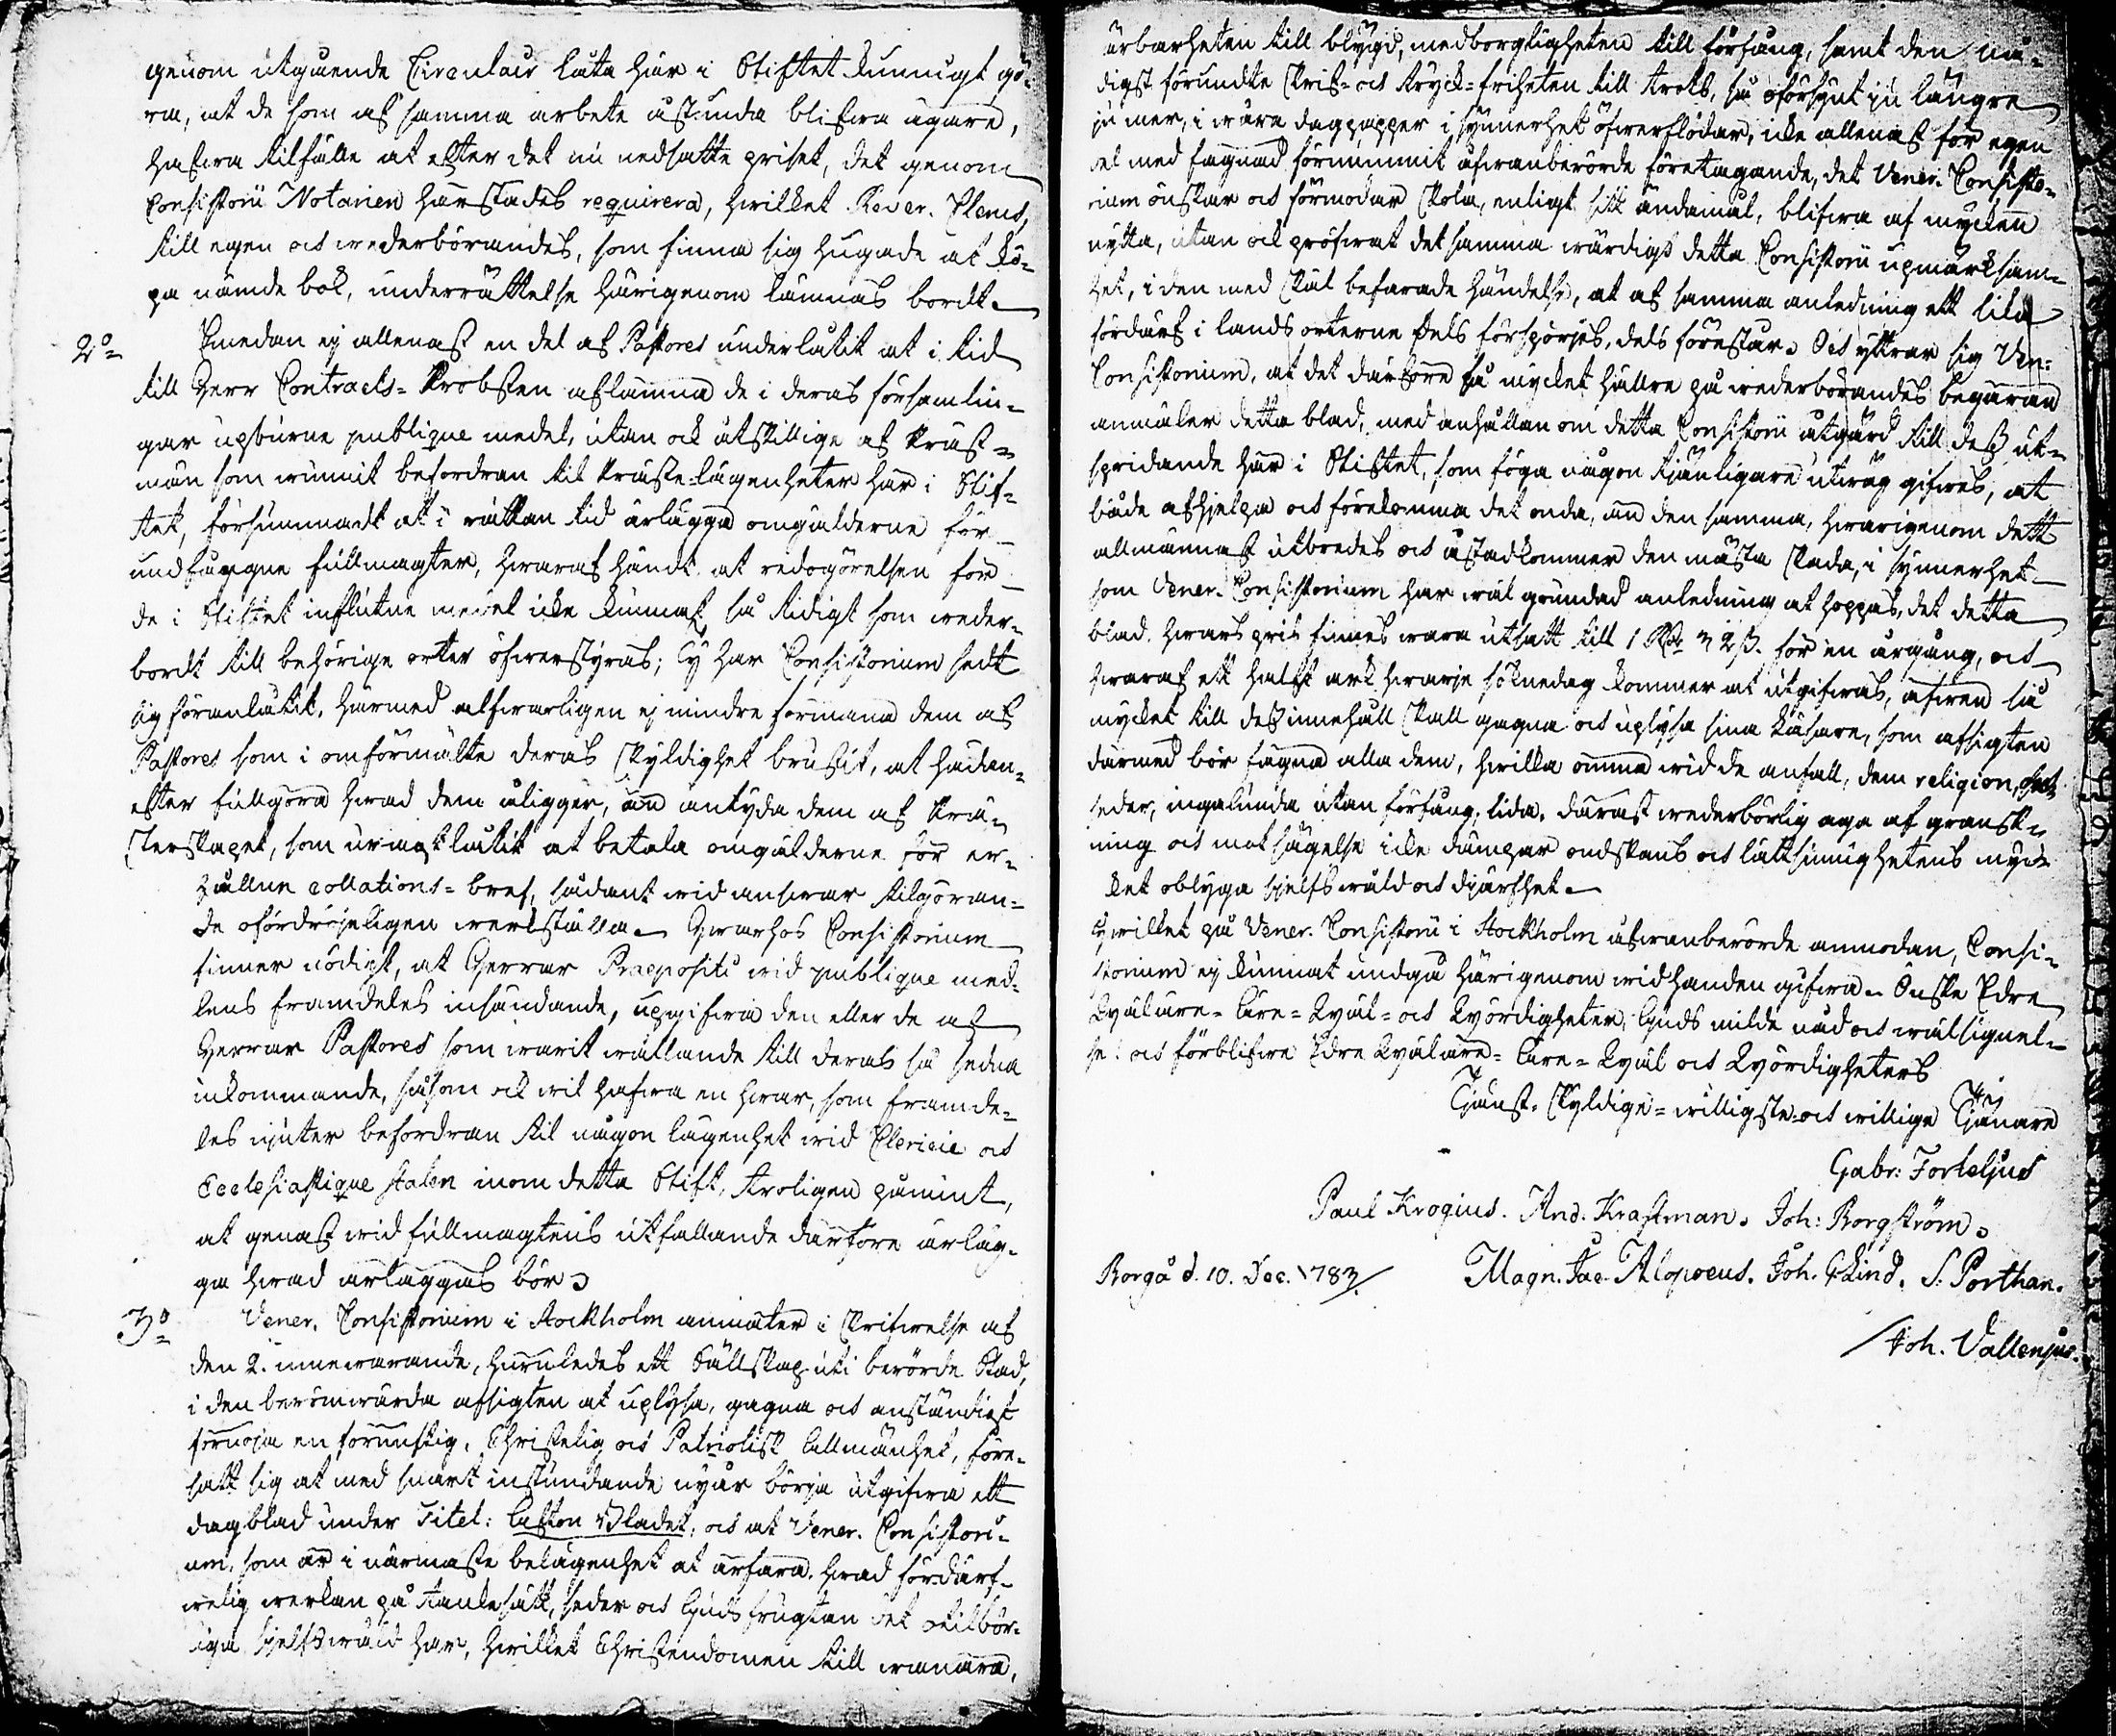 genom utgående Circulair låta här i Stiftet kunnigt gö-
ra, at de som af samma arbete åstunda blifwa ägare,
hafwa tilfälle at efter det nu nedsatte priset, det genom
Consistorii Notarien härstädes requirera, hwilket Rever. Clerus,
till egen och wederbörandes, som finna sig hugade at kö-
pa nämde bok, underrättelse härigenom lämnas bordt.
2o Emedan ej allenast en del af Pastores underlåtit at i tid
till Herr Contracts-Probsten aflämna de i deras församlin-
gar upburne publique medel, utan ock åtskillige af Präst-
män som wunnit befordran till Präste-lägenheter här i Stif-
tet, försummadt at i rättan tid ärlägga omgälderne för
undfångne fullmagter, hwaraf händt at redogörelsen för
de i Stiftet influtne medel icke kunnat så tidigt som weder-
bordt till behörige orter öfwerstyras; Ty har Consistorium sedt
sig föranlåtit, härmed alfwarligen ej mindre förmana dem af
Pastores som i omförmälte deras skyldighet brustit, at hädan-
efter fullgöra hwad dem åligger, än antyda dem af Prä-
sterskapet, som uraktlåtit at betala omgälderne för er-
hållne collations-bref, sådant wid answar tilgöran-
de ofördröjeligen werkställa. Hwarhos Consistorium
finner nödigt, at Herrar Praepositi wid publique med-
lens framdeles insändande, upgifwa den eller de af
Herrar Pastores som warit wållande till deras så sedna
inkommande, såsom ock wil hafwa en hwar, som framde-
les njuter befordran til någon lägenhet wid Clericie och
Ecclesiastique staten inom detta Stift, troligen påmint,
at genast wid fullmagtens utfallande därföre ärläg-
ga hwad ärläggas bör.
3o Vener. Consistorium i Stockholm anmäler i skrifwelse af
den 2. innewarande, huruledes ett Sällskap uti berörde Stad,
i den berömwärda afsigten at uplysa, gagna och anständigt
förnöja en förnuftig, Christelig och Patriotisk Allmänhet, före-
satt sig at med snart instundande nyår börja utgifwa ett
dagblad under Titel: Afton Bladet, och at Vener. Consistori-
um, som är i närmaste belägenhet at ärfara, hwad fördärf-
welig werkan på tankesätt, seder och Gudsfrugtan det otilbör-
liga sjelfswåld har, hwilket Christendomen till wanära,
ärbarheten till blygd, medborgligheten till förfång, samt den nå-
digst förundte Skrif- och Tryck-friheten till trots, så oförsynt ju längre
ju mer, i wåra dagpapper i synnerhet öfwerflödar, icke allenast för egen
del med fägnad förnummit ofwanberörde företagande, det Vener. Consisto-
rium önskar och förmodar skola, enligt sitt ändamål, blifwa af mycken
nytta, utan ock pröfwat det samma wärdigt detta Consistorii upmärksam-
het, i den med skäl befarade händelse, at af samma anledning ett lika
fördärf i lands orterne dels förspörjes, dels förestår. Och yttrar sig Ven:
Consistorium, at det därföre så mycket hällre på wederbörandes begäran
anmäler detta blad, med anhållan om detta Consistorii åtgärd till dess ut-
spridande här i Stiftet, som föga någon tjänligare utwäg gifwes, at
både afhjelpa och förekomma det onda, än den samma, hwarigenom dett
allmännast utbredes och åstadkommer den mästa skada, i synnerhet
som Vener. Consistorium har wäl grundad anledning at hoppas, det detta
blad, hwars pris finnes wara utsatt till 1 Rdr 32 ß. för en årgång, och
hwaraf ett halft ark hwarje söknedag kommer at utgifwas, äfwen så
mycket till dess innehåll skall gagna och uplysa sina läsare, som afsigten
därmed bör fägna alla dem, hwilka ömma wid de anfall, dem religion, och
seder, ingalunda utan förfång, lida, därast wederbörlig aga af gransk-
ning och motsägelse icke dämpar ondskans och lättsinnighetens myc-
ket oblyga sjelfswåld och djärfhet.
Hwilket på Vener. Consistorii i Stockholm ofwanberörde anmodan, Consi-
storium ej kunnat undgå härigenom wid handen gifwa. Önske Edre
Wäläre- Äre- Wäl- och Wördigheter, Guds milda nåd och wälsignel-
se! och förblifwe Edre Wäläre- Äre- Wäl och Wördigheters
Tjänst-skyldige- willigste och willige Tjänare
Gabr: Fortelius
Paul Krogius. And. Kraftman. Joh: Borgström.
Borgå d. 10. Dec. 1783. Magn. Jac. Alopoeus. Joh. G. Lind. S. Porthan.
Joh. Vallenjus.